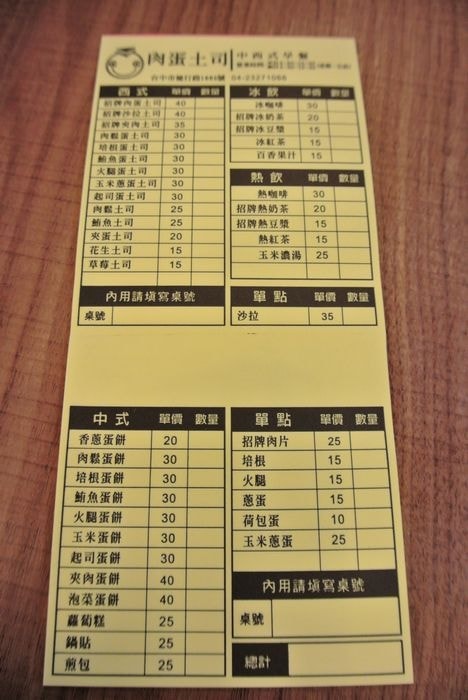 肉蛋土司 中西式早餐
台中市健行路1049號 04-23271066
西式 單價 數量
招牌肉蛋土司 40
招牌沙拉土司 40
招牌夾肉土司 35
肉鬆蛋土司 30
培根蛋土司 30
鮪魚蛋土司 30
火腿蛋土司 30
玉米蔥蛋土司 30
起司蛋土司 30
肉鬆土司 25
鮪魚土司 25
夾蛋土司 20
花生土司 15
草莓土司 15
內用請填寫桌號
桌號
冰飲 單價 數量
冰咖啡 30
招牌冰奶茶 20
招牌冰豆漿 15
冰紅茶 15
百香果汁 15
熱飲 單價 數量
熱咖啡 30
招牌熱奶茶 20
招牌熱豆漿 15
熱紅茶 15
玉米濃湯 25
單點 單價 數量
沙拉 35
中式 單價 數量
香蔥蛋餅 20
肉鬆蛋餅 30
培根蛋餅 30
鮪魚蛋餅 30
火腿蛋餅 30
玉米蛋餅 30
起司蛋餅 30
夾肉蛋餅 40
泡菜蛋餅 40
蘿蔔糕 25
鍋貼 25
煎包 25
單點 單價 數量
招牌肉片 25
培根 15
火腿 15
蔥蛋 15
荷包蛋 10
玉米蔥蛋 25
內用請填寫桌號
桌號
總計